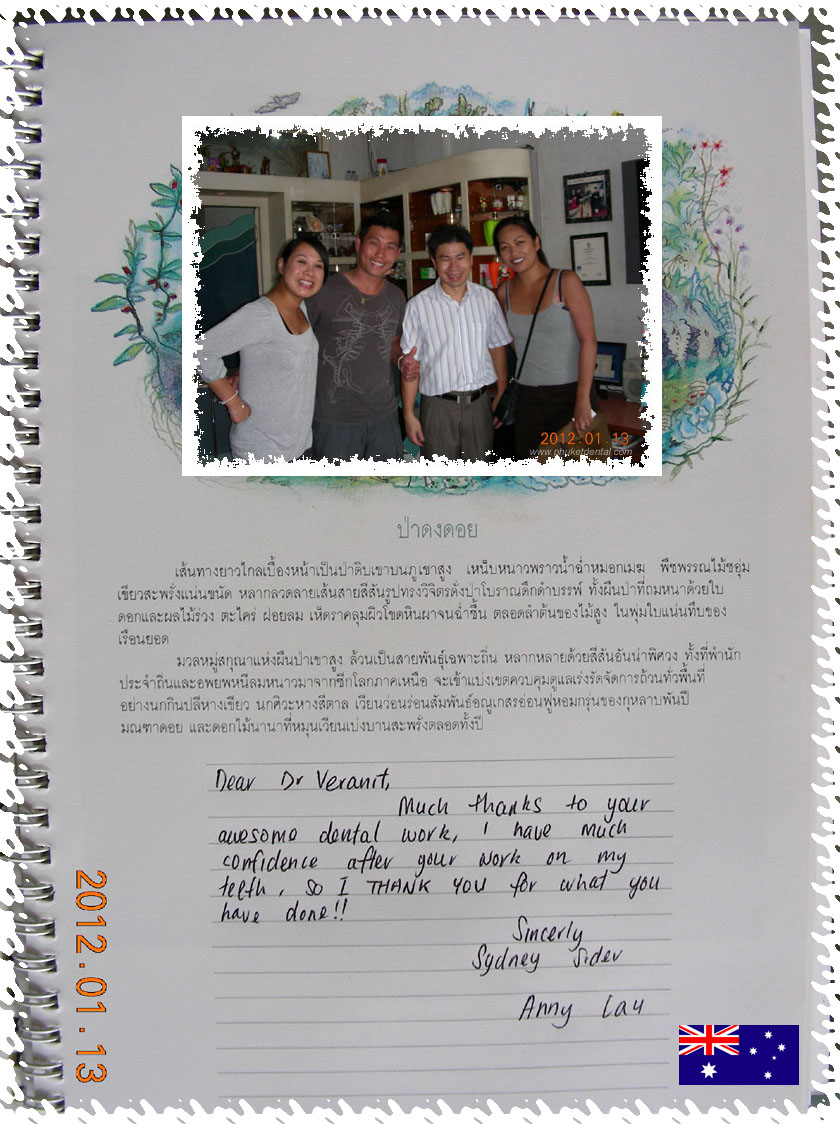 2012.01.13
www.phuketdental.com
ป่าดงดอย
เส้นทางยาวไกลเบื้องหน้าเป็นป่าดิบเขาบนภูเขาสูง เหน็บหนาวพราวน้ำฉ่ำหมอกเมฆ พืชพรรณไม้ชอุ่ม
เขียวสะพรั่งแน่นขนัด หลากลวดลายเส้นสายสีสันรูปทรงวิจิตรดั่งป่าโบราณดึกดำบรรพ์ ทั้งผืนป่าที่ถมหนาด้วยใบ
ดอกและผลไม้ร่วง ตะไคร่ ฝอยลม เห็ดราคลุมผิวโขดหินผาจนฉ่ำชื้น ตลอดลำต้นของไม้สูง ในพุ่มใบแน่นทึบของ
เรือนยอด
มวลหมู่สกุณาแห่งผืนป่าเขาสูง ล้วนเป็นสายพันธุ์เฉพาะถิ่น หลากหลายด้วยสีสันอันน่าพิศวง ทั้งที่พำนัก
ประจำถิ่นและอพยพหนีลมหนาวมาจากซีกโลกภาคเหนือ จะเข้าแบ่งเขตควบคุมดูแลเร่งรัดจัดการถ้วนทั่วพื้นที่
อย่างนกกินปลีหางเขียว นกศิวะหางสีตาล เวียนว่อนร่อนสัมพันธ์อณูเกสรอ่อนฟูหอมกรุ่นของกุหลาบพันปี
มณฑาดอย และดอกไม้นานาที่หมุนเวียนเบ่งบานสะพรั่งตลอดทั้งปี
Dear Dr Veranit,
Much thanks to your
awesome dental work, I have much
confidence after your work on my
teeth, so I THANK YOU for what you
have done!!
Sincerly
Sydney Sider
Anny Lau
2012.01.13